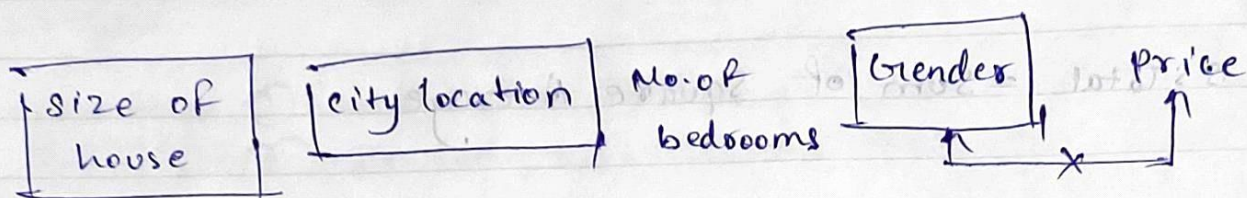 size of
house
city location
No. of
bedrooms
Gender
Price